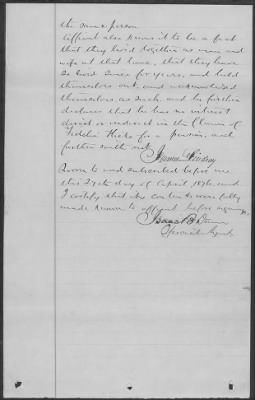 the same person
Affiant also knows it to be a fact
that they lived together as man and
wife at that time, that they have
so lived since for years, and held
themselves out and recognized
themselves as such and he further
declares that he has no interest
direct or indirect in the Claim of
Hicks for a pension, and
further saith not
Sworn to and subscribed before me
this 27th day of April 1876 and
I certify that the contents were fully
made known to affiant before signing.
Isaac B
Special Agent